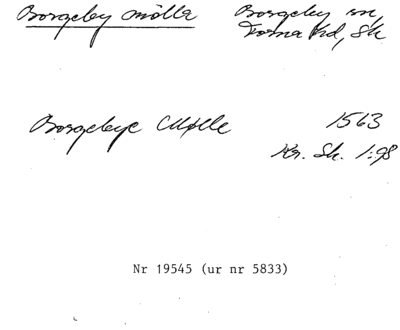 Borgeby mölla Borgeby sn,
Torna hd, Sk
Borgebye Mølle 1563
Kr. Sk. 1:98
Nr 19545 (ur nr 5833)